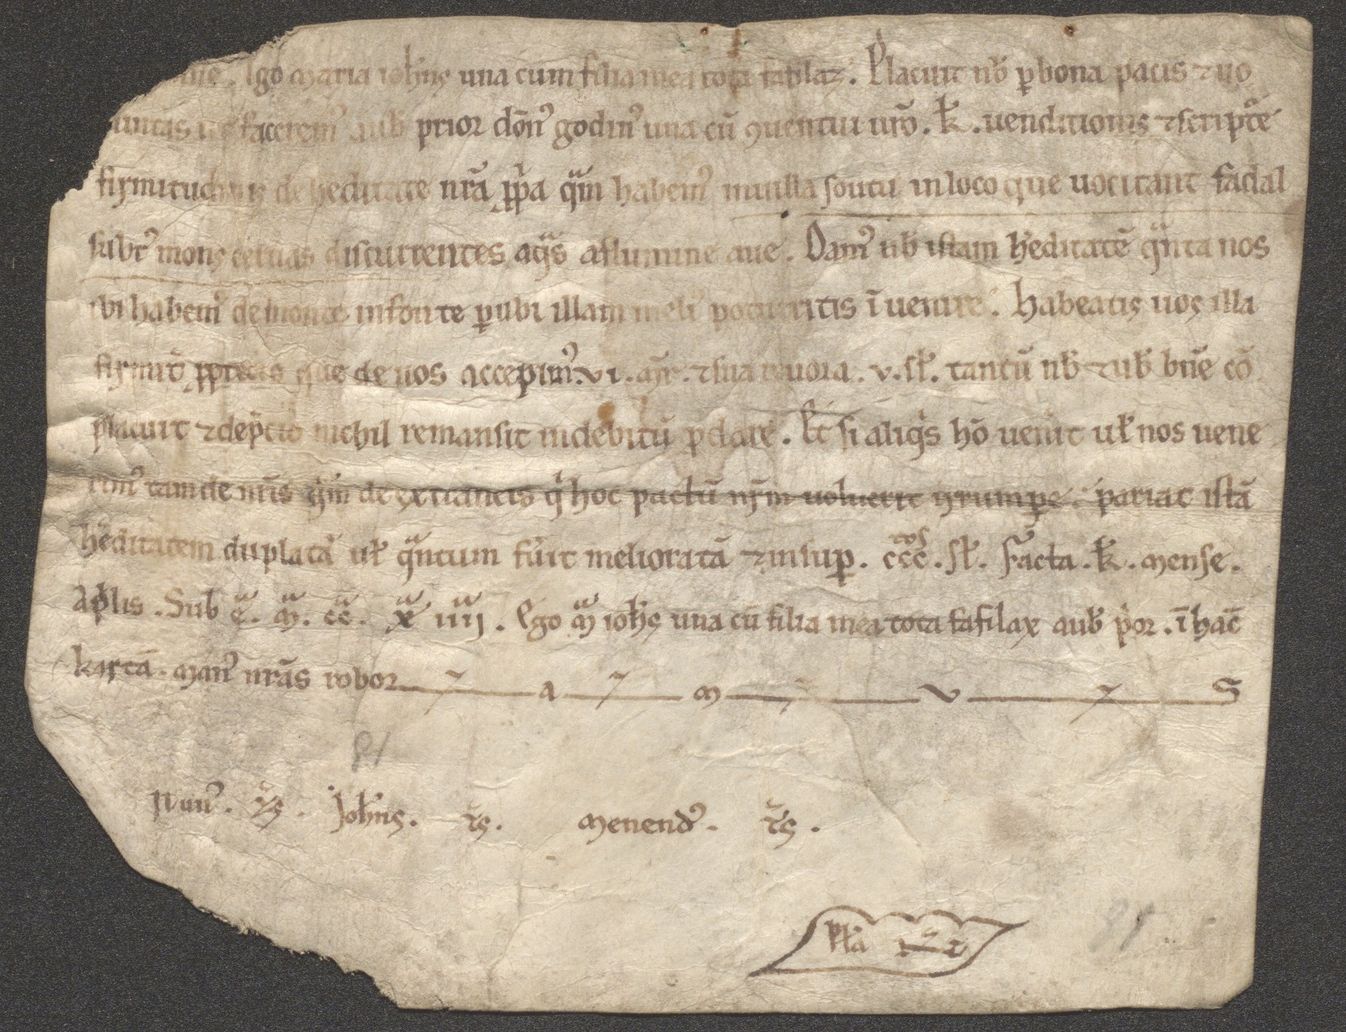 ne. Ego maria ioh'nis una cum filia mea tota fafilaz. Placuit nb' p bona pacis ⁊ uo
luntas ut facerem' aub' prior dõn' godin' una cũ ꝯuentui uro. k'. uenditionis ⁊ scripte
firmitudinis de heditate nrã ppa qm habem' in uilla soutu in loco que uocitant fadal
subt' mons discurrentes aqs aflumine aue. Dam' ub' istam h'editatẽ qnta nos
ibi habem' de monte in fonte p ubi illam meli' potueritis ĩuenire. Habeatis uos illa
firmit' que de uos accepim'. vi. mr'. ⁊ sua . v. sl'. tantũ nb' ⁊ ub' bñe cõ
placuit ⁊ de p'cio nichil remansit in debitũ p dare. Et si aliq's hõ uenit ul' nos uene
rim' tam de nr̃is qm de extraneis q' hoc pactũ nr̃m uoluerit irrumpe. pariat istã
h'editatem duplatã ul' qntum fu'it melioratã ⁊ insup. ccc^os. sl'. Facta. k'. mense.
Ap'lis. Sub e^a. m^a. cc^a. x^a iiii^a. Ego m^a ioh'is una cũ filia mea tota fafilax aub' p'or. ĩ hac̃
kartã. man' nrãs robor a m v S
81
Nun'. ts. Joh'nis. ts. Menend'. ts.
81